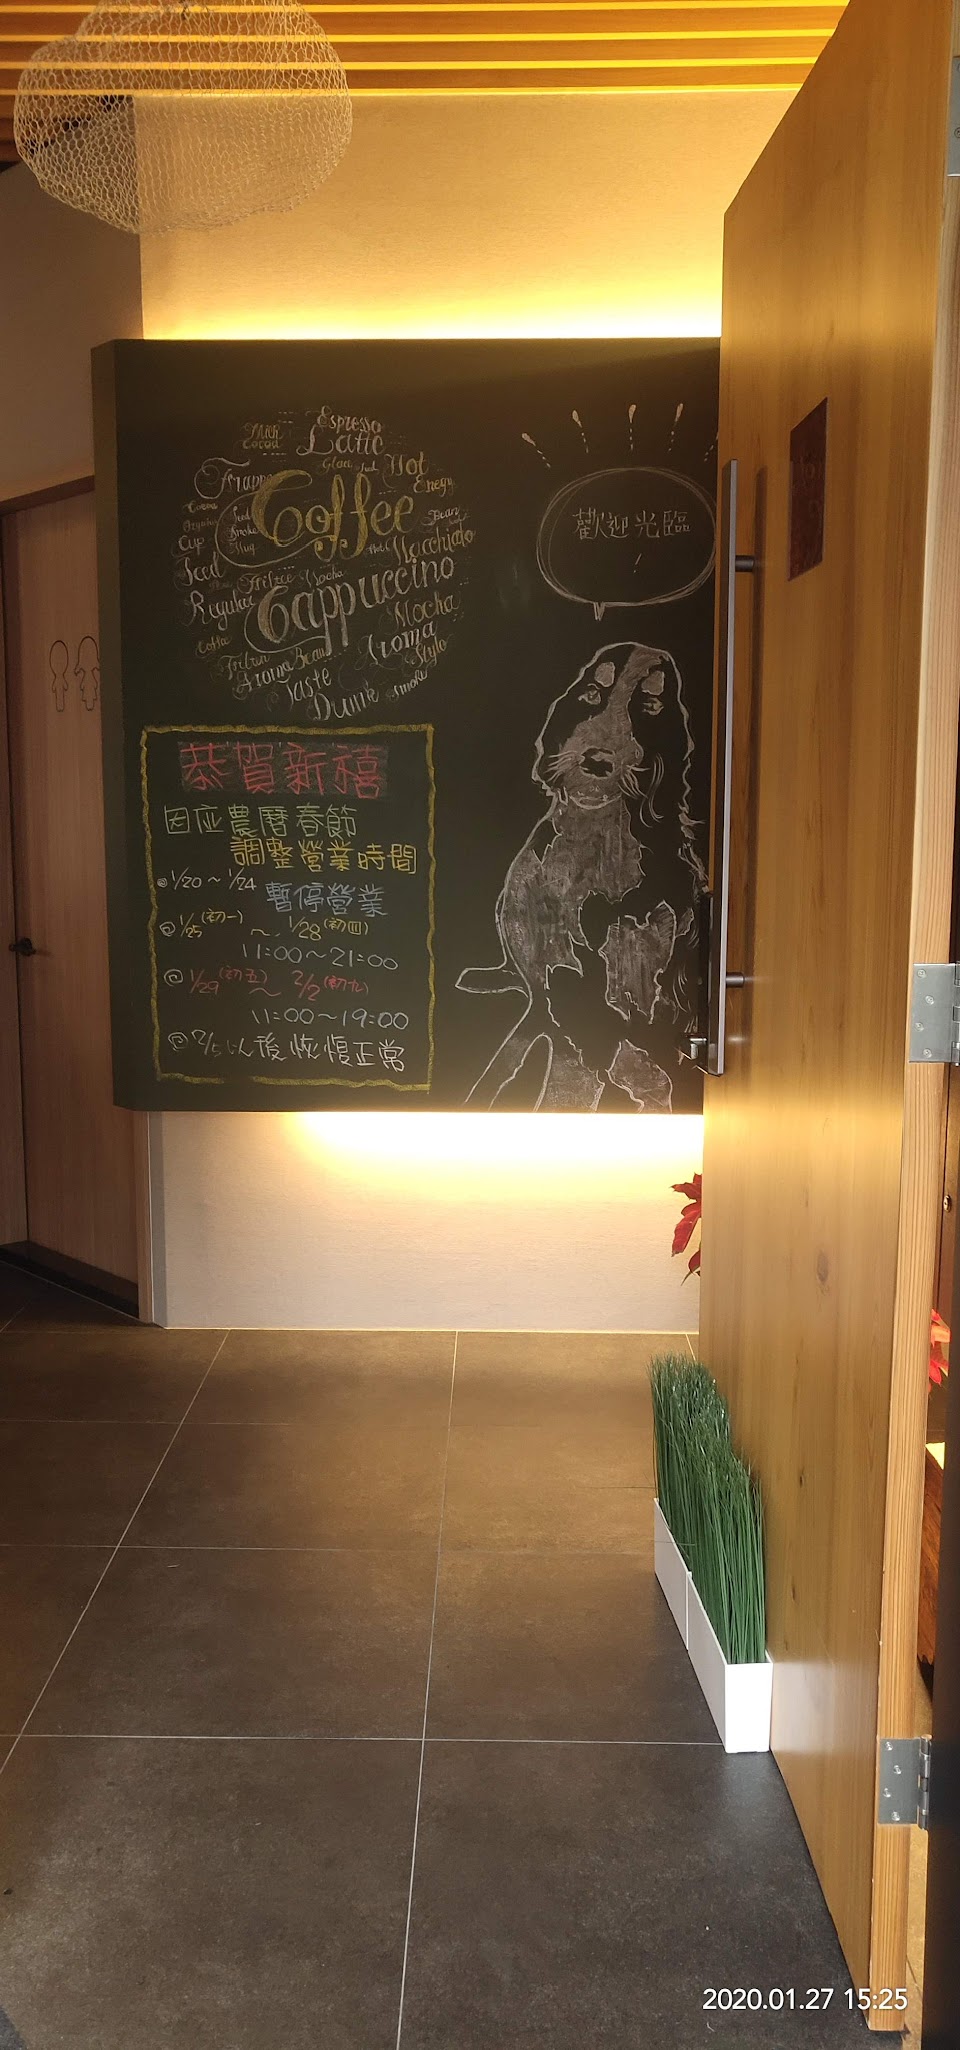 Espresso
Milk
Latte
Hot
Frappe
Energy
Coffee
Bean
Cup
Mug
Macchiato
Seed
Mocha
Cappuccino
Regular
Mocha
Coffee
Aroma
Style
Aroma Bean
Taste
Smoke
Drink
歡迎光臨
!
恭賀新禧
因应農曆春節
調整營業時間
@1/20~1/24 暫停營業
@1/25(初一)~1/28(初四)
11:00~21:00
@1/29(初五)~2/2(初九)
11:00~19:00
後恢愎正常
2020.01.27 15:25